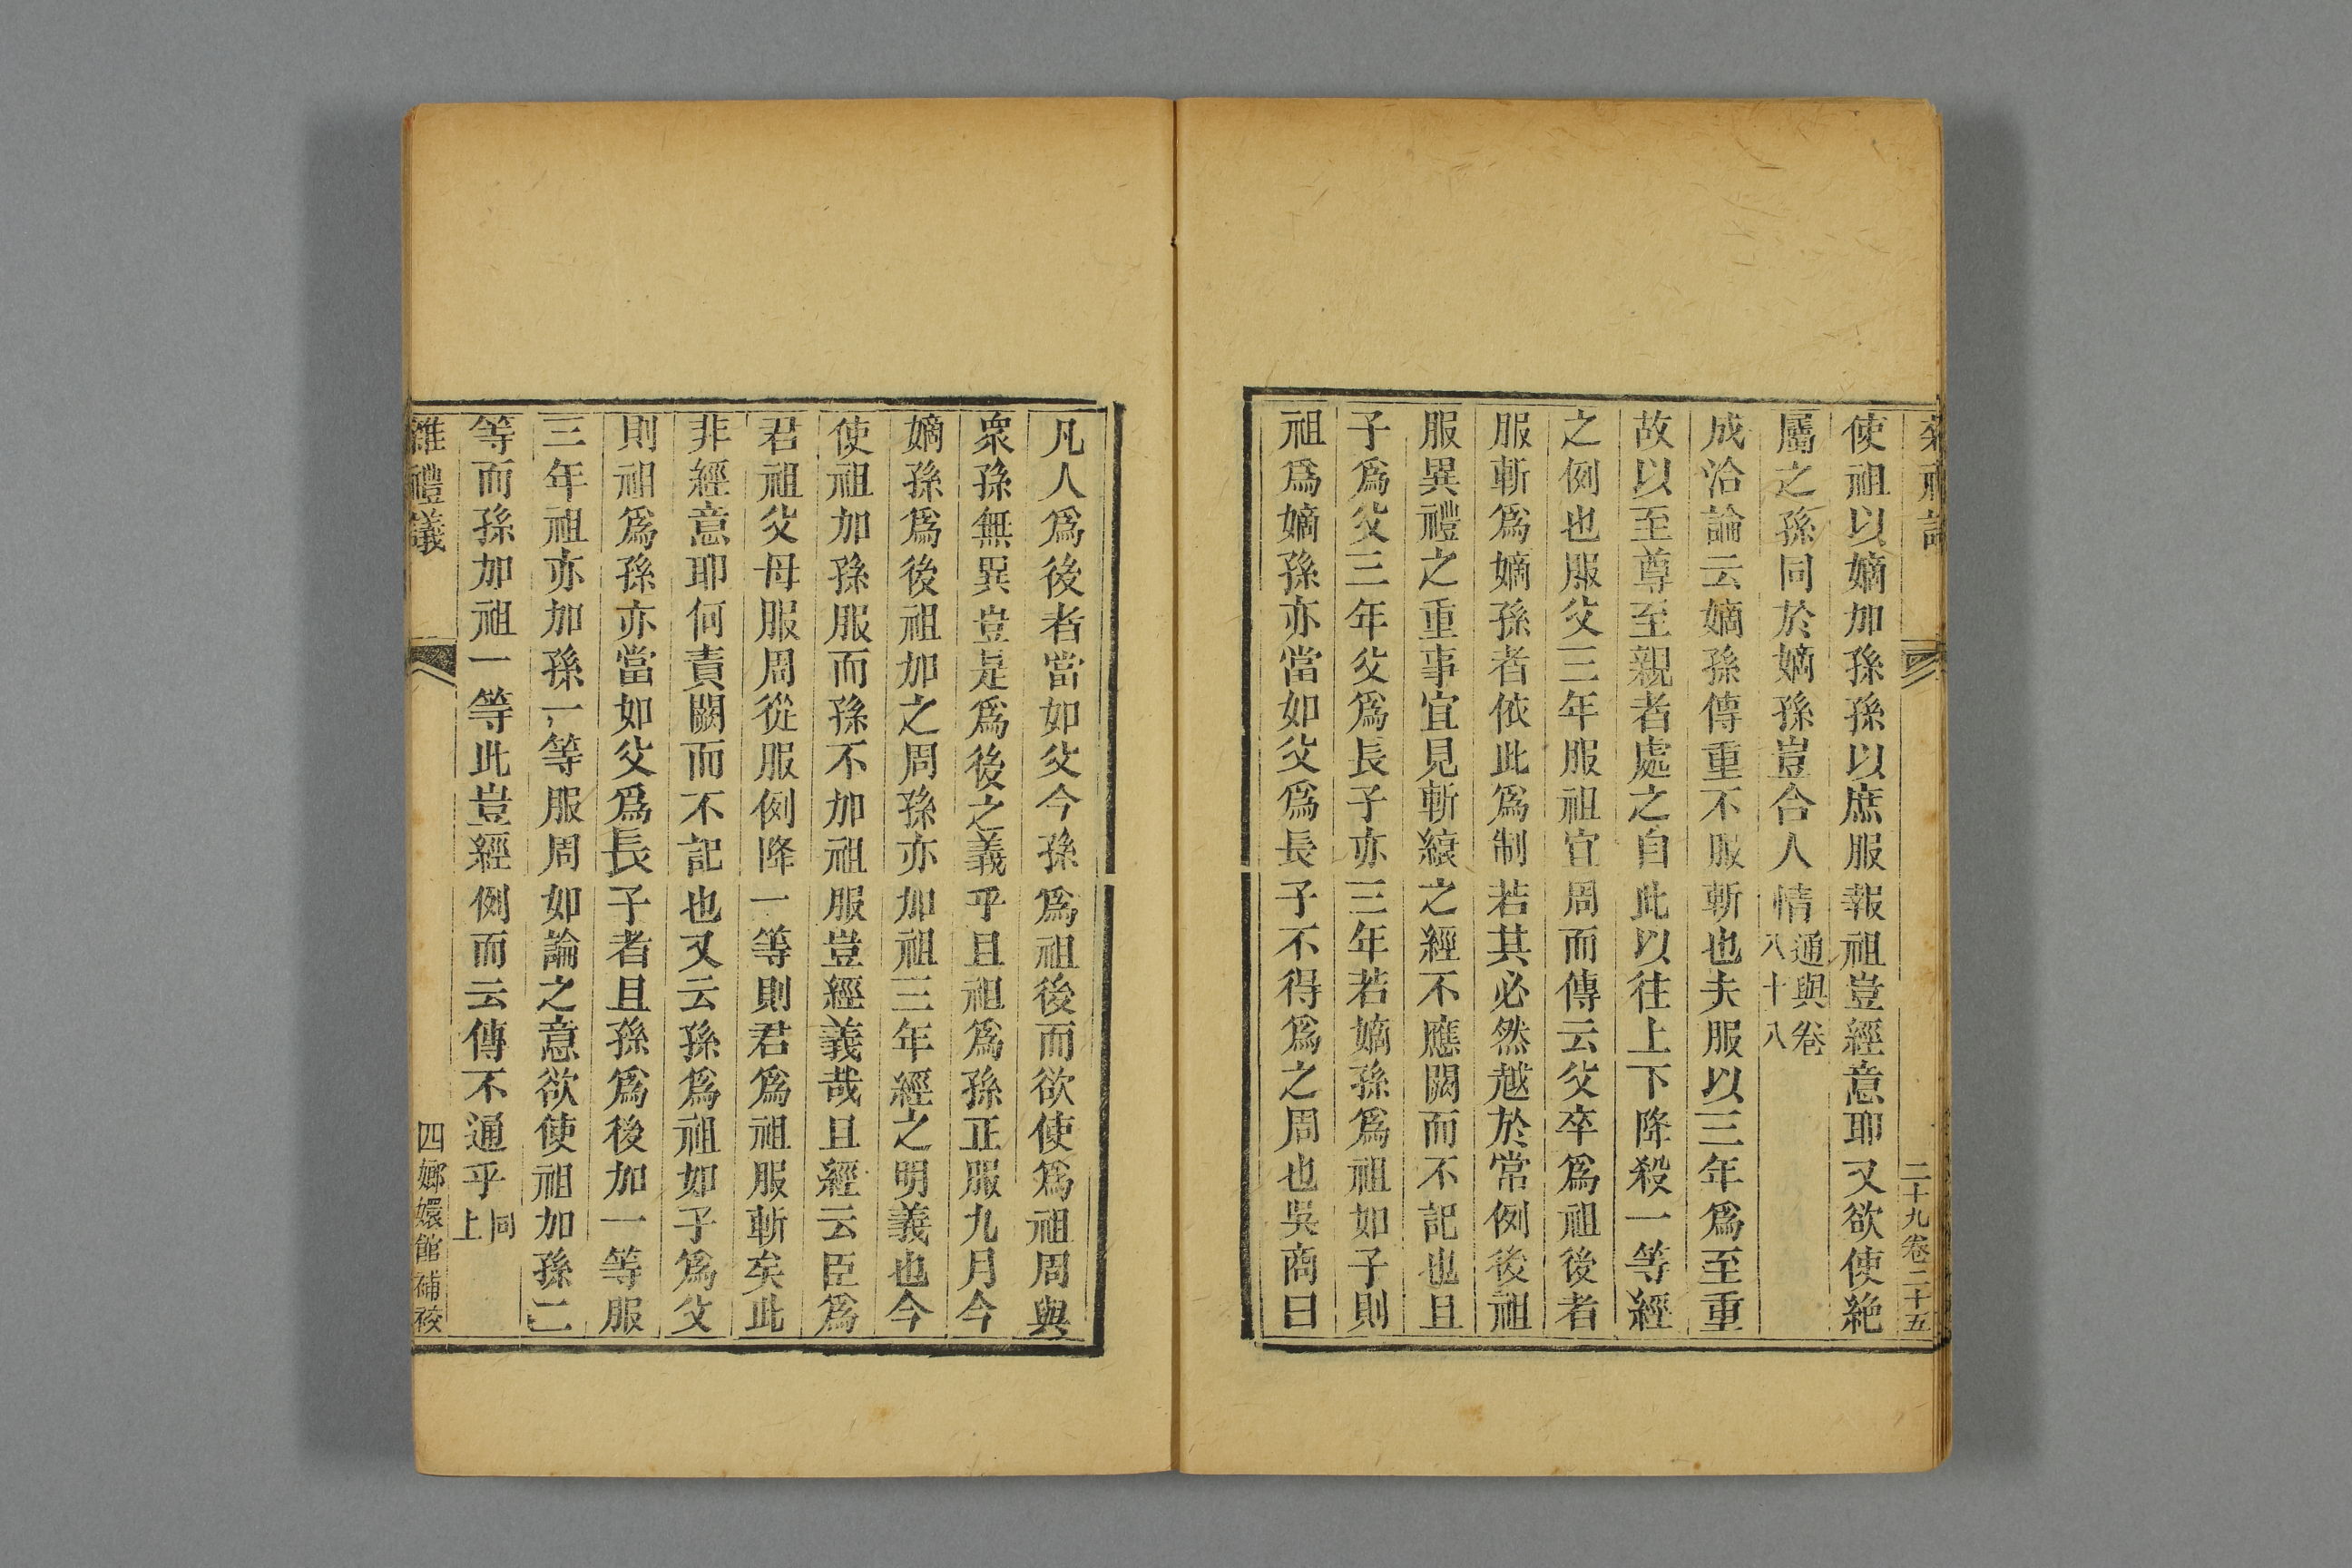 二十九卷二十五
使祖以嫡加孫孫以庶服報祖豈經意耶又欲使絶
屬之孫同於嫡孫豈合人情通典卷八十八
成洽論云嫡孫傳重不服斬也夫服以三年爲至重
故以至尊至親者處之自此以往上下降殺一等經
之例也服父三年服祖宜周而傳云父卒爲祖後者
服斬爲嫡孫者依此爲制若其必然越於常例後祖
服異禮之重事宜見斬縗之經不應闕而不記也且
子爲父三年父爲長子亦三年若嫡孫爲祖如子則
祖爲嫡孫亦當如父爲長子不得爲之周也吳商曰
凡人爲後者當如父今孫爲祖後而欲使爲祖周與
衆孫無異豈是爲後之義乎且祖爲孫正服九月今
嫡孫爲後祖加之周孫亦加祖三年經之明義也今
使祖加孫服而孫不加祖服豈經義哉且經云臣爲
君祖父母服周從服例降一等則君爲祖服斬矣此
非經意耶何責闕而不記也又云孫爲祖如子爲父
則祖爲孫亦當如父爲長子者且孫爲後加一等服
三年祖亦加孫一等服周如論之意欲使祖加孫二
等而孫加祖一等此豈經例而云傳不通乎同上
雜禮議
四嫏嬛館補校